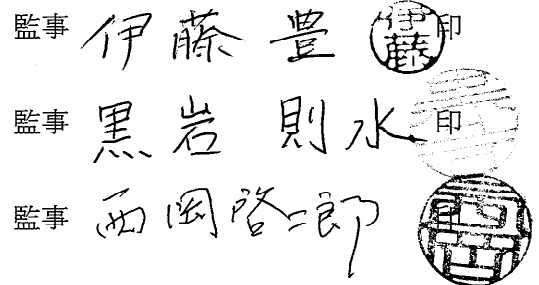 監事 伊藤 豊 伊藤 印
監事 黒岩 則水 印
監事 西岡啓二郎